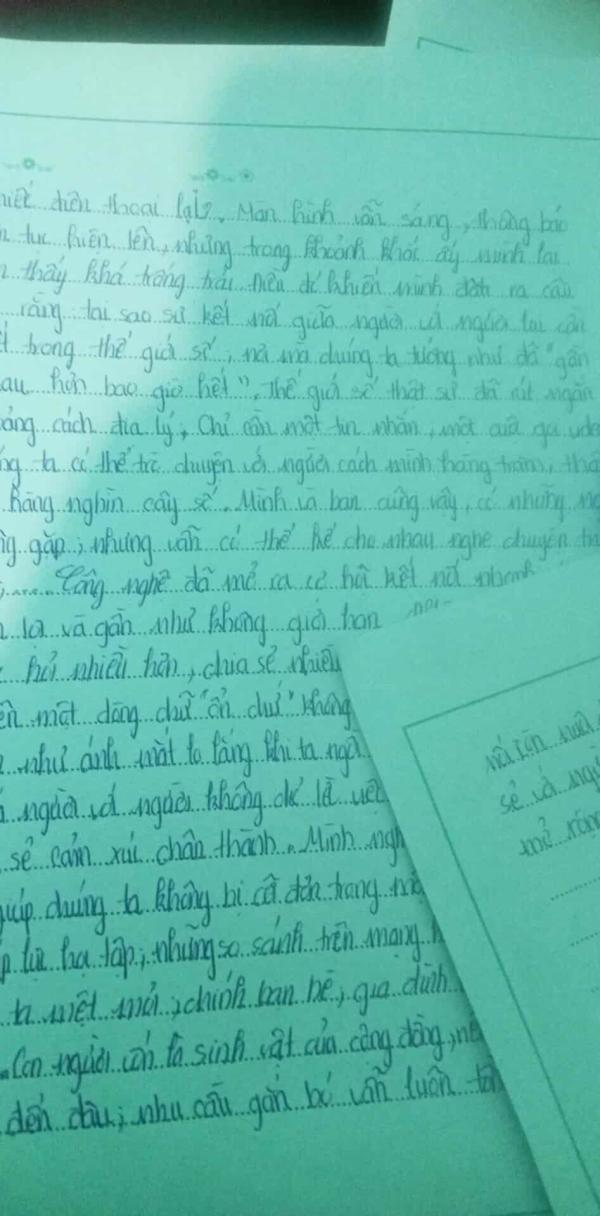 điện thoại lại, Màn hình vẫn sáng, thông báo
tục hiện lên, nhưng trong khoảnh khắc ấy mình lại
thấy khá trống trải. Điều đó khiến mình đặt ra câu
rằng tại sao sự kết nối giữa người và người lại cần
trong thế giới số, nơi mà chúng ta tưởng như đã "gần
hơn bao giờ hết". Thế giới số thật sự đã rút ngắn
cách địa lý, Chỉ cần một tin nhắn, một cuộc gọi video
ta có thể trò chuyện với người cách mình hàng trăm,
hàng nghìn cây số. Mình và bạn cũng vậy, có những
gặp, nhưng vẫn có thể kể cho nhau nghe chuyện
Công nghệ đã mở ra cơ hội kết nối nhanh
lợi và gần như không giới hạn
hỏi nhiều hơn, chia sẻ nhiều
một dòng chữ "ổn chứ" không
như ánh mắt lo lắng khi ta
người với người không chỉ là
sẻ cảm xúc chân thành. Mình
giúp chúng ta không bị cô đơn trong
lực học tập, những so sánh trên mạng
ta mệt mỏi, chính bạn bè, gia đình
Con người vốn là sinh vật của cộng đồng,
đến đâu, nhu cầu gắn bó vẫn luôn
sẻ và
mở rộng